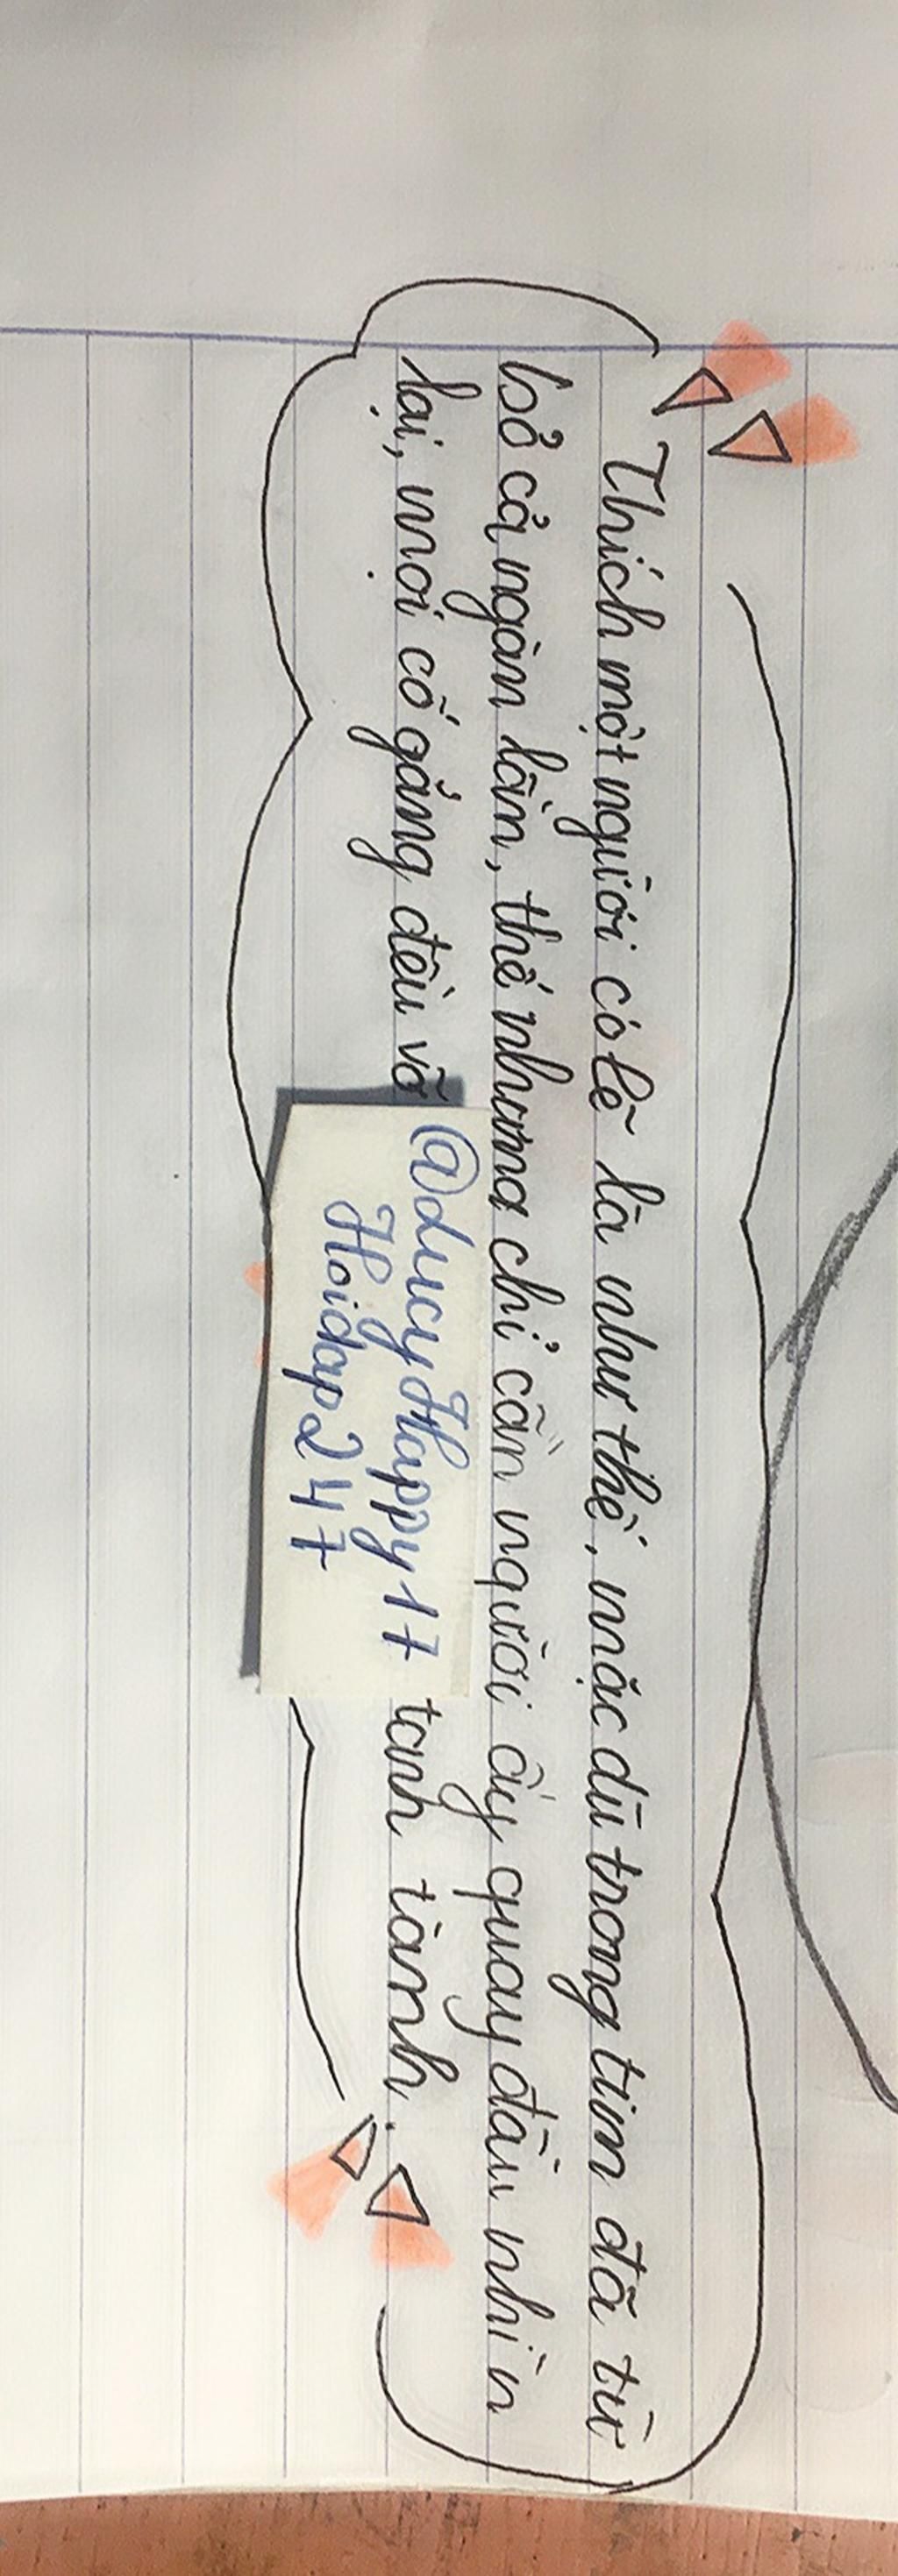 Thích một người có lẽ là như thế, mặc dù trong tim đã từ
bỏ cả ngàn lần, thế nhưng chỉ cần người ấy quay đầu nhìn
lại, mọi cố gắng đều vỡ tanh tành.
@LucyHappy17
Hoidap247